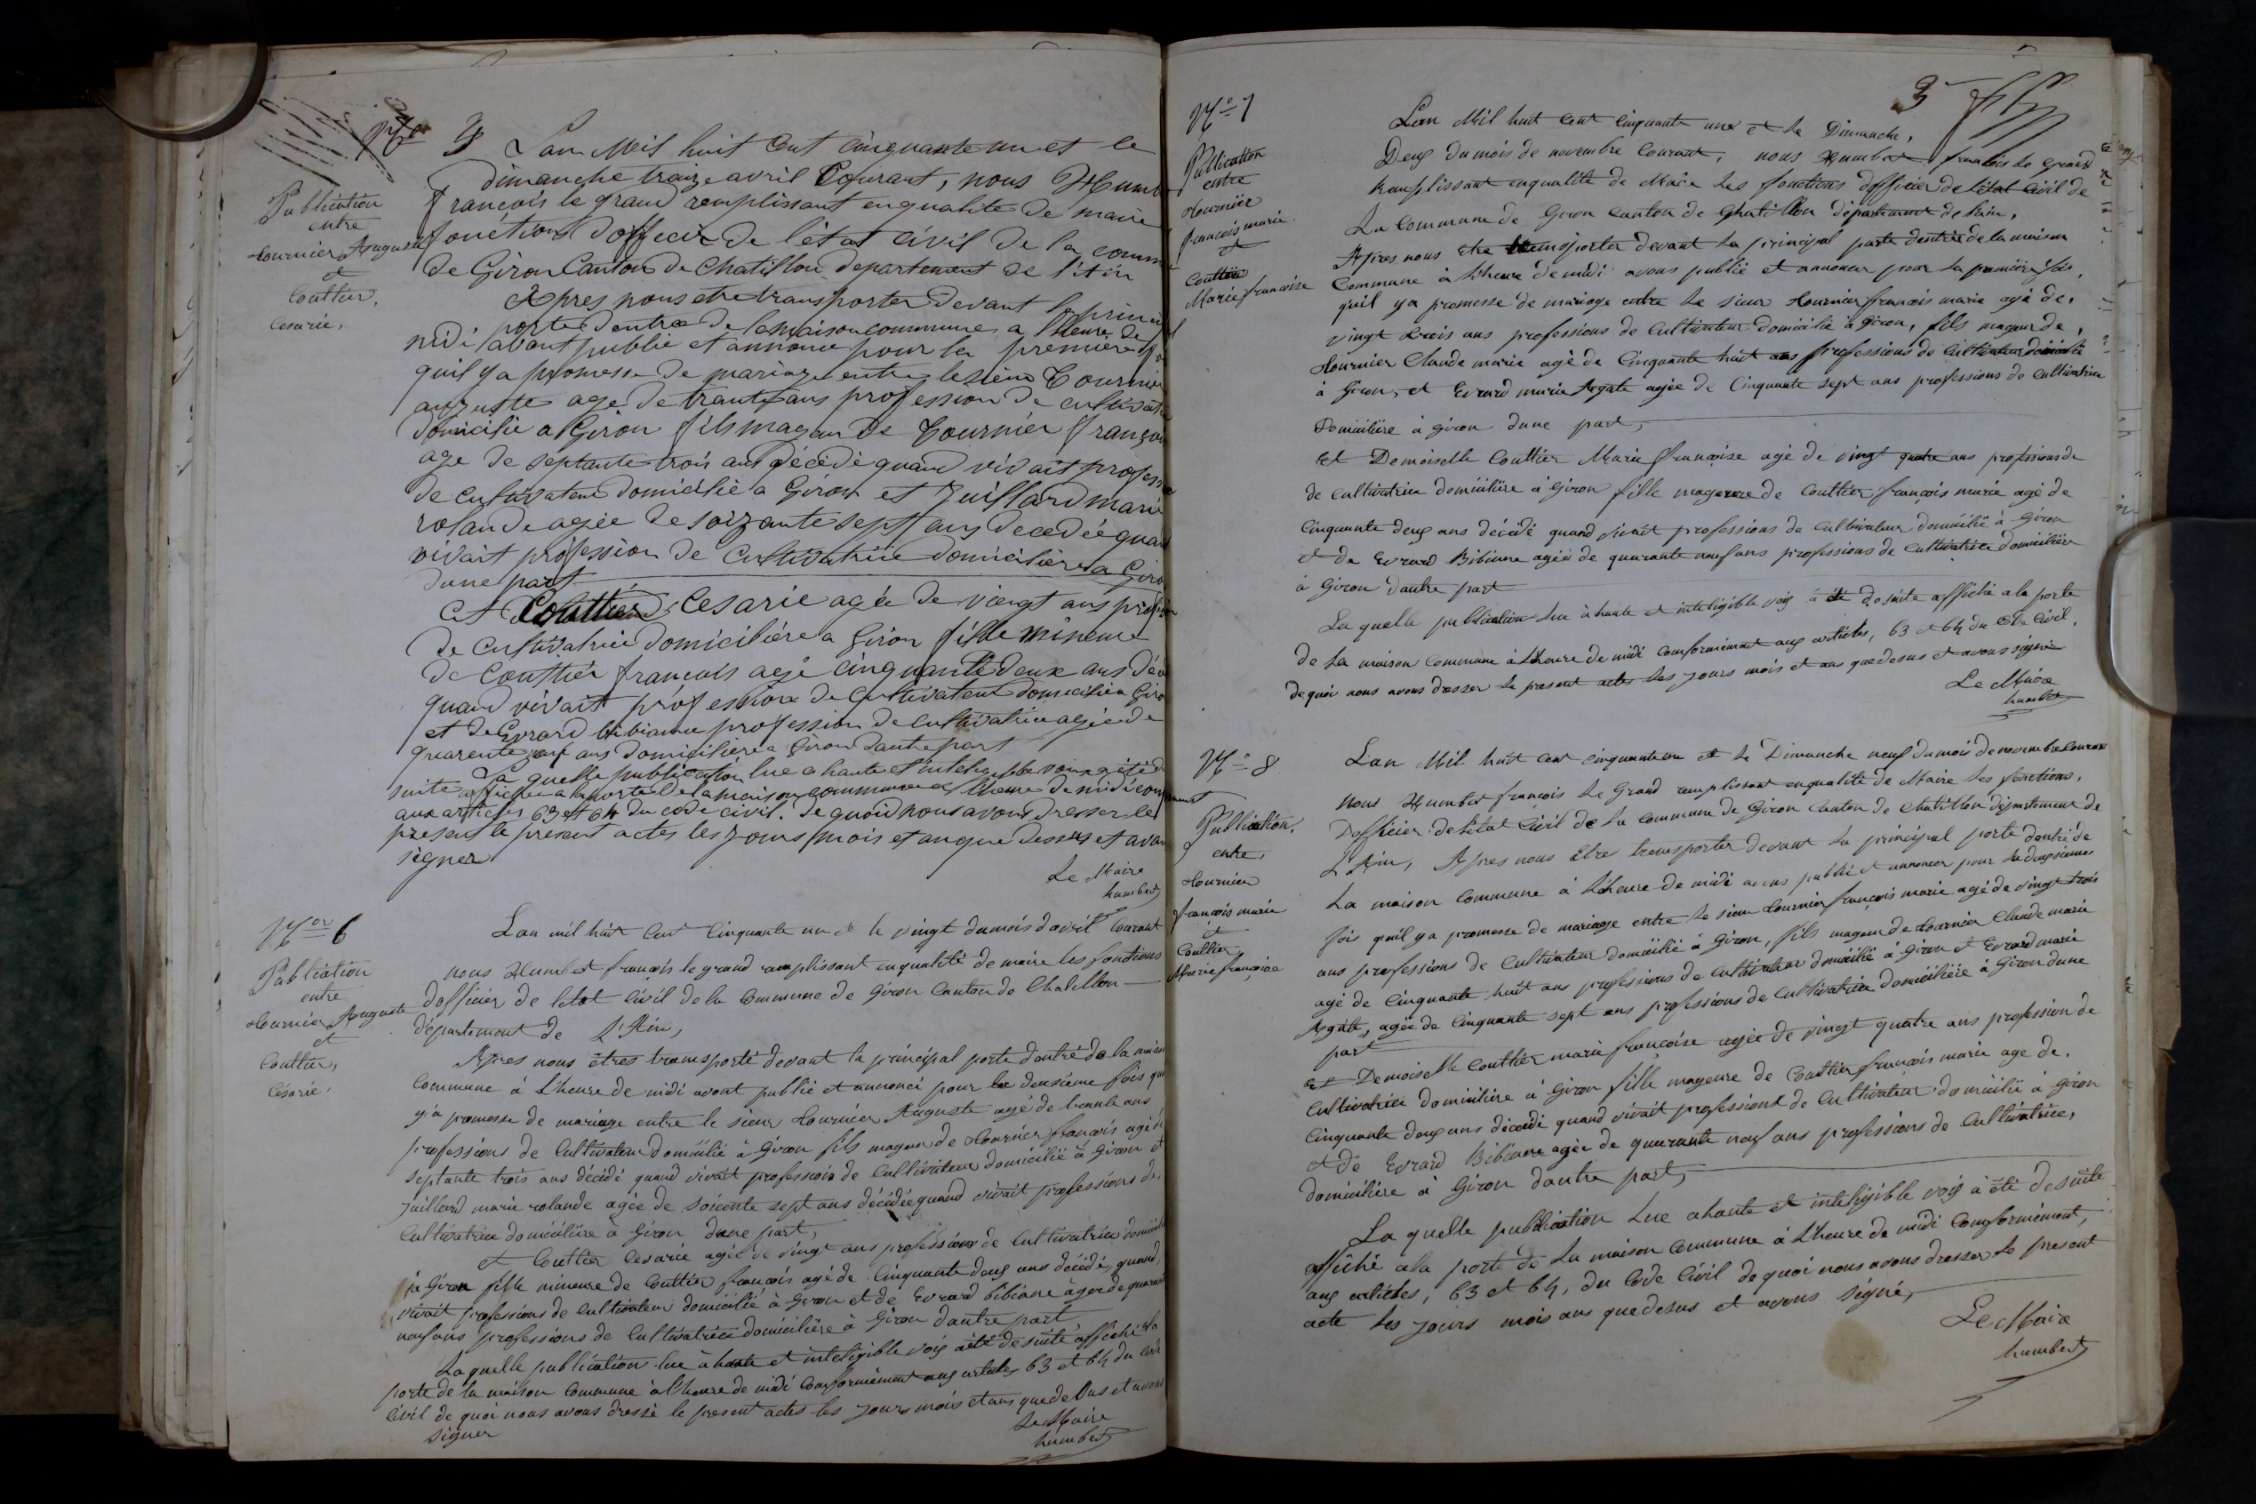 Publication
entre
tournier Auguste
et
Couttier,
Cesarie,
L'an Mil huit Cent Cinquante un et le
dimanche traize avril Courant, nous Humb
François le grand remplissant en qualité de maire
fonctions d'officier de l'état civil de la comm
de Giron Canton de Chatillon departement de l'Ain
Apres nous etre transporter devant la princi
porte d'entrée de la maison commune a l'heure de
midi, avont publié et annonce pour la premiere
quil y a promesse de mariage entre le sieur Tournier
auguste agé de trante ans profession de cultivat
domicilié a Giron fils mageur de Tournier François
age de septante trois ans décédé quand vivait profess
de cultivateur domicilié a Giron et Juillard marie
rolande agée de soizante sept ans decedée quan
vivait profession de Cultivatrice domicilière a Giro
dune part
Et Couttier Cesarie agée de vingt ans profession
de Cultivatrice domicilière a Giron fille mineure
de Couttier François agé cinquante deux ans déc
quand vivait profession de Cultivateur domicilié a Giro
et de Evrard bibianne profession de cultivatrice agée de
quarente neuf ans domicilière a Giron dautre part
La quelle publication lue a haute et inteligible voix a été de
suite affichee a la porte de la maison commune a l'heure de midi conformement
aux articles 63 et 64 du code civil. De quoi nous avons dresser le
present le present actes les jours mois et an que dessus et avon
signer
Le Maire
humbert
Nor 6
Publication
entre
tournier Auguste
et
Couttier,
Césarie.
Lan mil huit Cent Cinquante un et le vingt du mois d'avril Courant
nous Humbert françois le grand remplissant en qualité de maire les fonctions
d'officier de l'etat Civil de la Commune de Giron Canton de Chatillon
département de l'Ain,
Apres nous êtres transporté devant la principal porte dentré de la maison
Commune à l'heure de midi avont publié et annoncé pour la deusième fois qui
y'a promesse de mariage entre le sieur tournier Auguste agé de trente ans
professions de Cultivateur domicilié à Giron fils mageur de tournier françois agé de
septante trois ans décédé quand vivait profession de Cultivateur domicilié à Giron et
Juillard marie rolande agée de soixante sept ans décédée quand vivait professions de
Cultivatrice domicilière à Giron dune part,
et Couttier Cesarie agée de vingt ans professions de Cultivatrice domicilière
à Giron fille mineure de Couttier françois agé de Cinquante deux ans décédé, quand
vivait professions de Cultivateur domicilié à Giron et de Evrard bibiane agée de quarante
neuf ans professions de Cultivatrice domicilière à Giron dautre part
Laquelle publication lue à haute et inteligible voix a été de suite affiché a la
porte de la maison Commune à l'heure de midi Conformément aux articles 63 et 64 du Code
Civil de quoi nous avons dressé le present actes les jours mois et ans que desus et avons
signer
Le Maire
humbert
3
No 7
Publication
entre
tournier
françois marie
et
Couttier
Marie françoise
Lan Mil huit Cent Cinquante une et le Dimanche,
Deux du mois de novembre Courant, nous Humbert francois le grand
remplissant en qualité de Maire les fonctions d'officier de l'état Civil de
La Commune de Giron Canton de Chatillon département de l'ain,
Apres nous etre transporter devant la principal porte dentrée de la maison
Commune à l'heure de midi avons publié et annoncer pour la premiere fois,
quil y a promesse de mariage entre le sieur tournier francois marie agé de,
vingt trois ans professions de Cultivateur domicilié à Giron, fils mageur de,
tournier Claude marie agé de Cinquante huit ans professions de Cultivateur domicilié
à Giron, et Evrard marie Agate agée de Cinquante sept ans professions de Cultivatrice
Domicilière à Giron dune part,
Et Demoiselle Couttier Marie françoise agé de vingt quatre ans professions de
de Cultivatrice domicilière à Giron fille mageure de Couttier françois marie agé de
Cinquante deux ans décédé quand vivait professions de Cultivateur domicilié à Giron
et de Evrard Bibiane agée de quarante neuf ans professions de Cultivatrice domicilière
à Giron dautre part
La quelle publication lue à haute et inteligible voix à été de suite affiché a la porte
de la maison Commune à l'heure de midi Conformément aux articles, 63 et 64 du Code Civil,
de quoi nous avons dresser le present actes les jours mois et ans que desus et avons signé
Le Maire
humbert
No 8
Publication,
entre,
tournier
françois marie
et
Couttier
Marie françoise
Lan Mil huit Cent Cinquante un et le Dimanche neuf du mois de novembre Courant
nous Humbert françois le Grand remplissant en qualité de Maire les fonctions,
D'officier de l'état Civil de la Commune de Giron Canton de Chatillon département de
L'Ain, Apres nous être transporter devant la principal porte dentré de
La maison Commune à l'heure de midi avons publié et annoncer pour la deuxieme
fois quil y a promesse de mariage entre le sieur tournier françois marie agé de vingt trois
ans professions de Cultivateur domicilié à Giron, fils mageur de tournier Claude marie
agé de Cinquante huit ans professions de Cultivateur domicilié à Giron et Evrard marie
Agate, agée de Cinquante sept ans professions de Cultivatrice domicilière à Giron dune
part
et Demoiselle Couttier marie françoise agée de vingt quatre ans profession de
Cultivatrice domicilière à Giron fille mageure de Couttier françois marie age de,
Cinquante deux ans décédé quand vivait professions de Cultivateur domicilié à Giron
et de Evrard Bibiane agée de quarante neuf ans professions de Cultivatrice,
domicilière à Giron dautre part,
La quelle publication lue a haute et inteligible voix à été de suite
affiché a la porte de la maison Commune à l'heure de midi Conformément,
aux articles, 63 et 64, du Code Civil de quoi nous avons dresser le present
acte les jours mois ans que desus et avons signé,
Le Maire
humbert